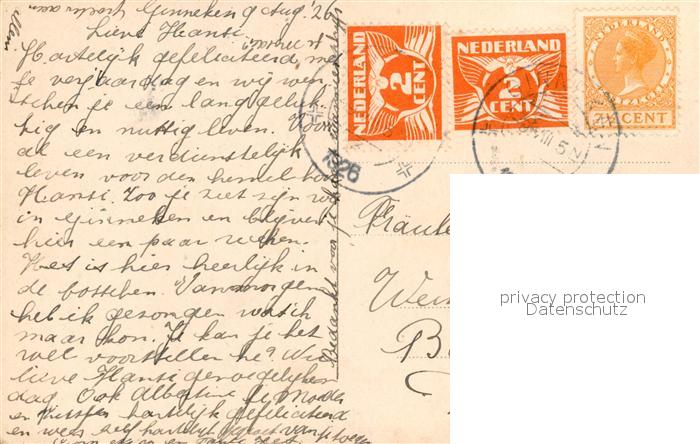 Ginneken 9 Aug. '26
Lieve Hansi.
Hartelijk gefeliciteerd met
je verjaardag en wij wen
schen je een lang geluk
kig en nuttig leven. Voor
al een verdienstelijk
leven voor den hemel hoor
Hansi. Zoo je ziet zijn wij
in Ginneken en blijven
hier een paar weken.
Het is hier heerlijk in
de bosschen. Van morgen
heb ik gezongen wat ik
maar kon. Je kan je het
wel voorstellen he? Wie
lieve Hansi genoegelijken
dag. Ook Albertine je Moeder
en hartelijk gefeliciteerd
en wees zelf hartelijk gekust van
en Tante
Bedankt voor je
NEDERLAND
2
CENT
NEDERLAND
3
CENT
NEDERLAND
7½ CENT
1926
VIII 5 N
Fräule
B
privacy protection
Datenschutz